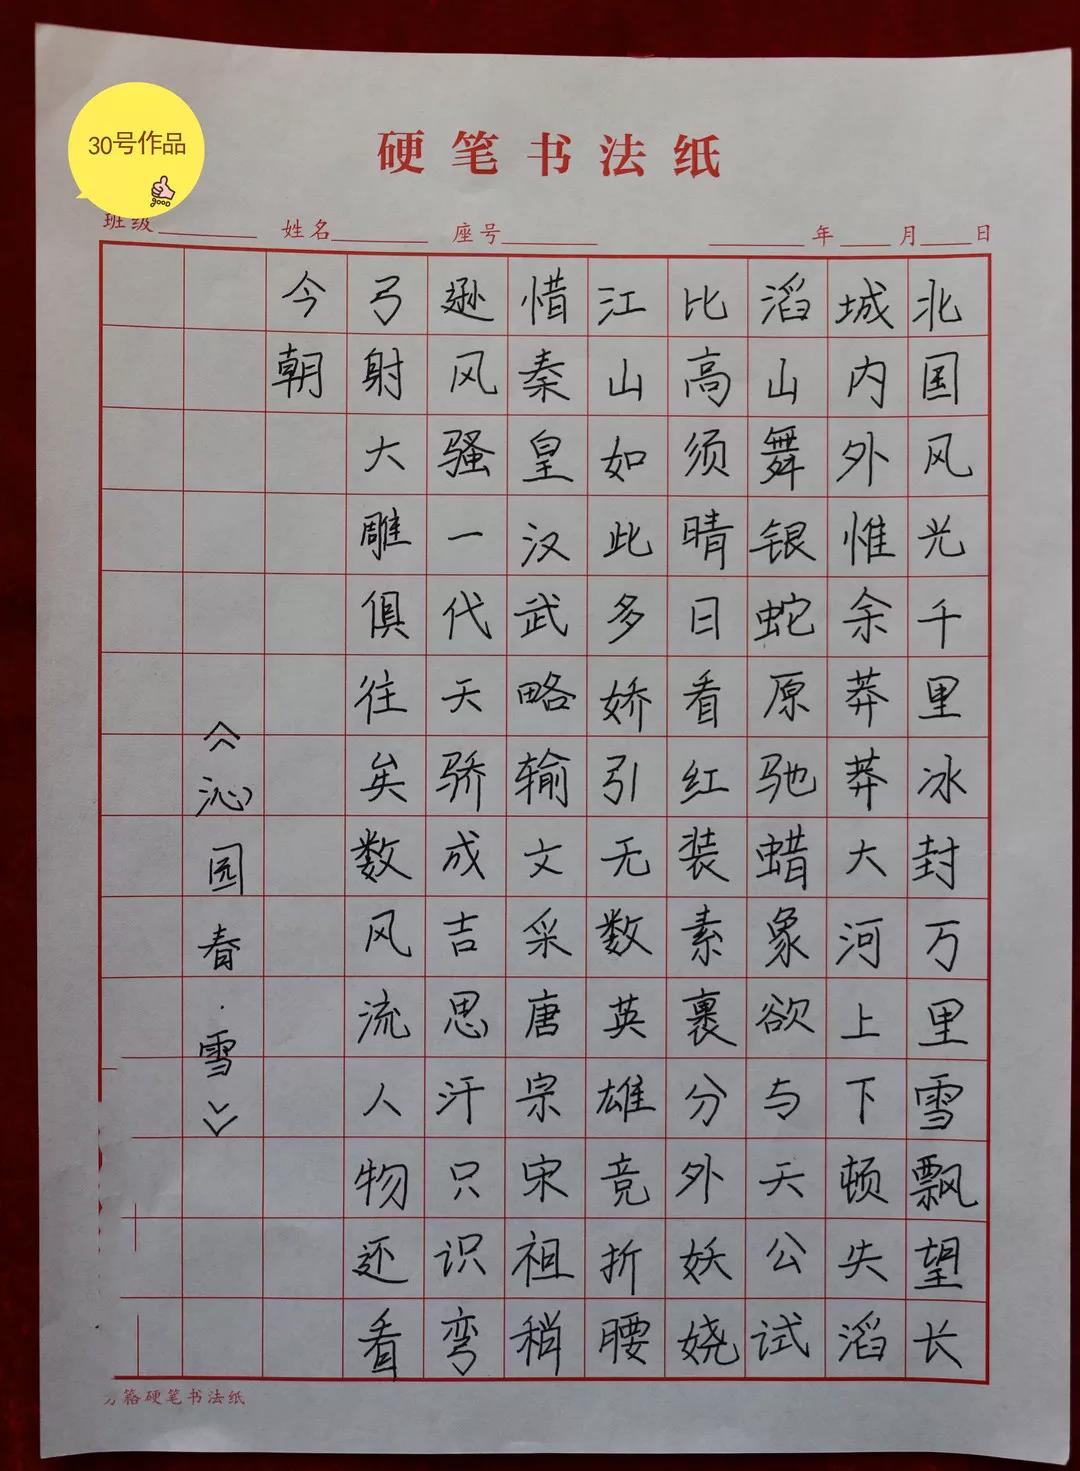 30号作品
硬笔书法纸
班级 姓名 座号 年 月 日
北国风光千里冰封万里雪飘望长
城内外惟余莽莽大河上下顿失滔
滔山舞银蛇原驰蜡象欲与天公试
比高须晴日看红装素裹分外妖娆
江山如此多娇引无数英雄竞折腰
惜秦皇汉武略输文采唐宗宋祖稍
逊风骚一代天骄成吉思汗只识弯
弓射大雕俱往矣数风流人物还看
今朝
《沁园春·雪》
硬笔书法纸